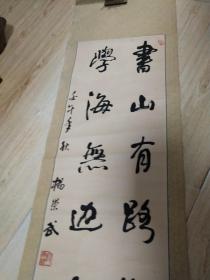 書山有路
學海無边
壬午年秋
楊崇武